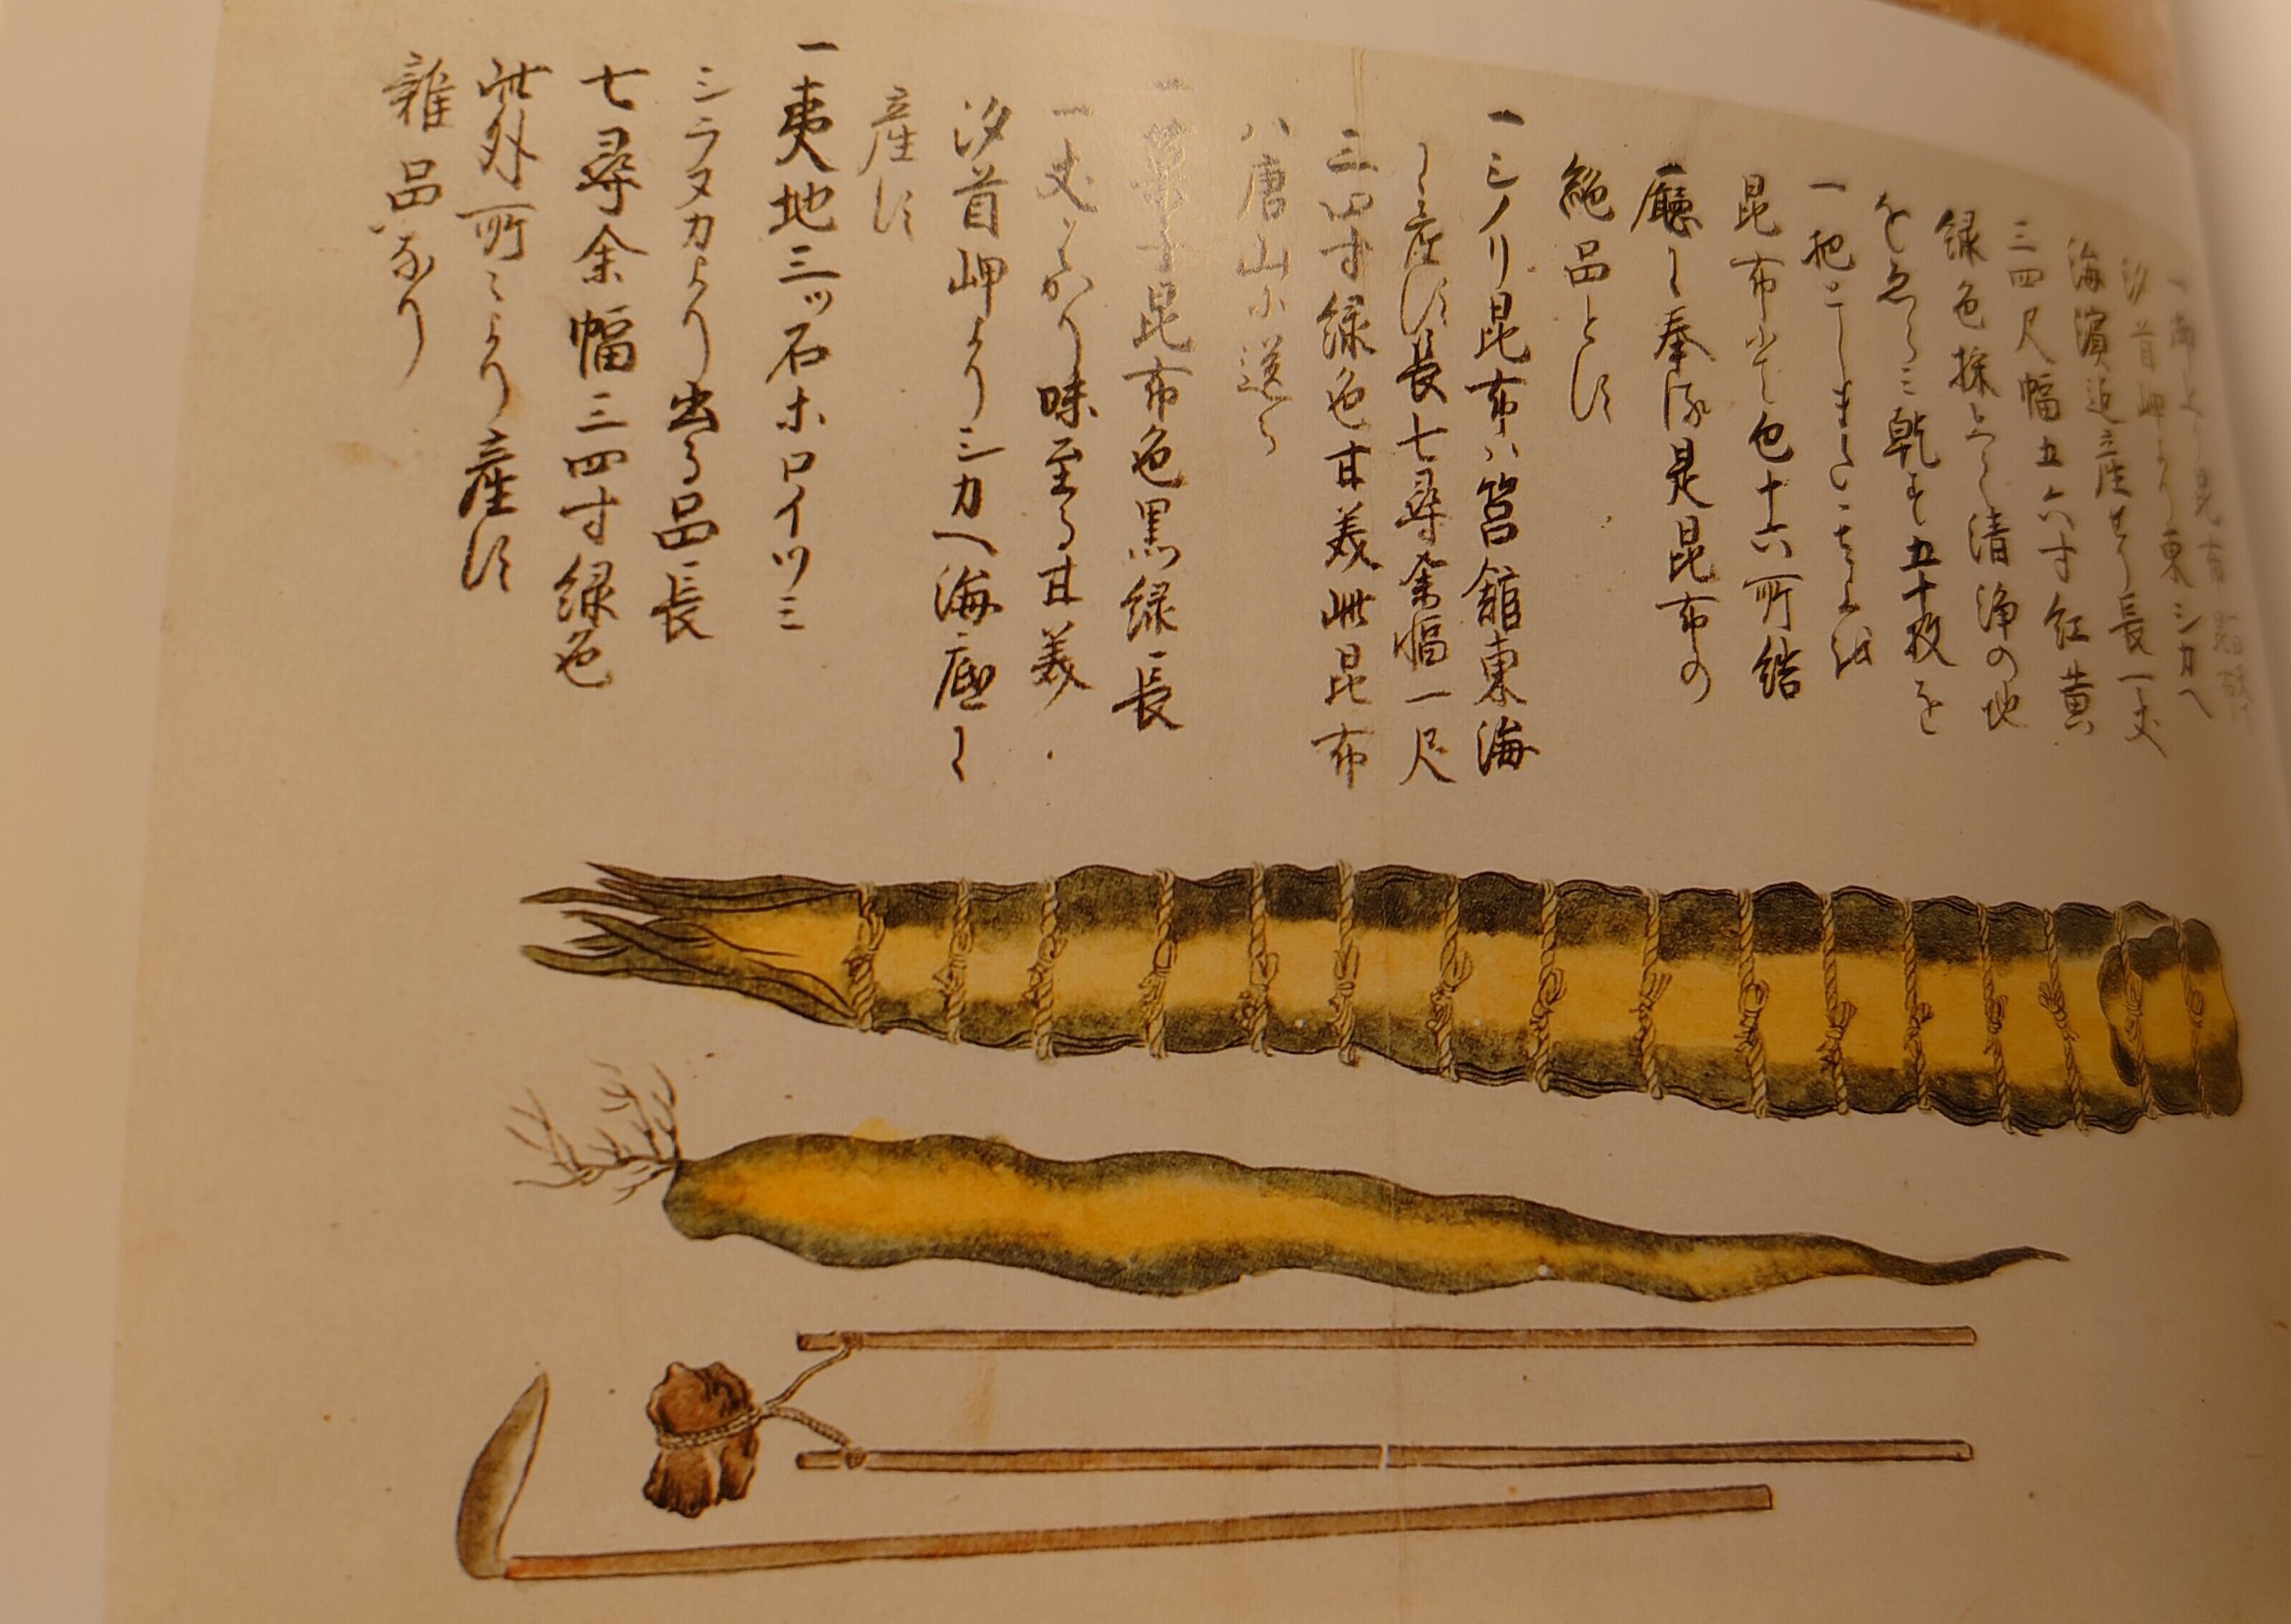 汐首岬より東シカヘ
海濱近産せり長一丈
三四尺幅五六寸紅黄
緑色採上て清浄の地
をゑらミ乾す五十枚を
一把とし
昆布にて包十六所結
廳に奉る是昆布の
絶品とす
一シノリ昆布ハ箱館東海
に産す長七尋余幅一尺
三四寸緑色甘美此昆布
ハ唐山に送る
一菓子昆布色黒緑長
一丈はかり味至る甘美
汐首岬よりシカヘ海底に
産す
一夷地三ツ石ホロイツミ
シラヌカより出る品長
七尋余幅三四寸緑色
此外所々より産す
雑品なり